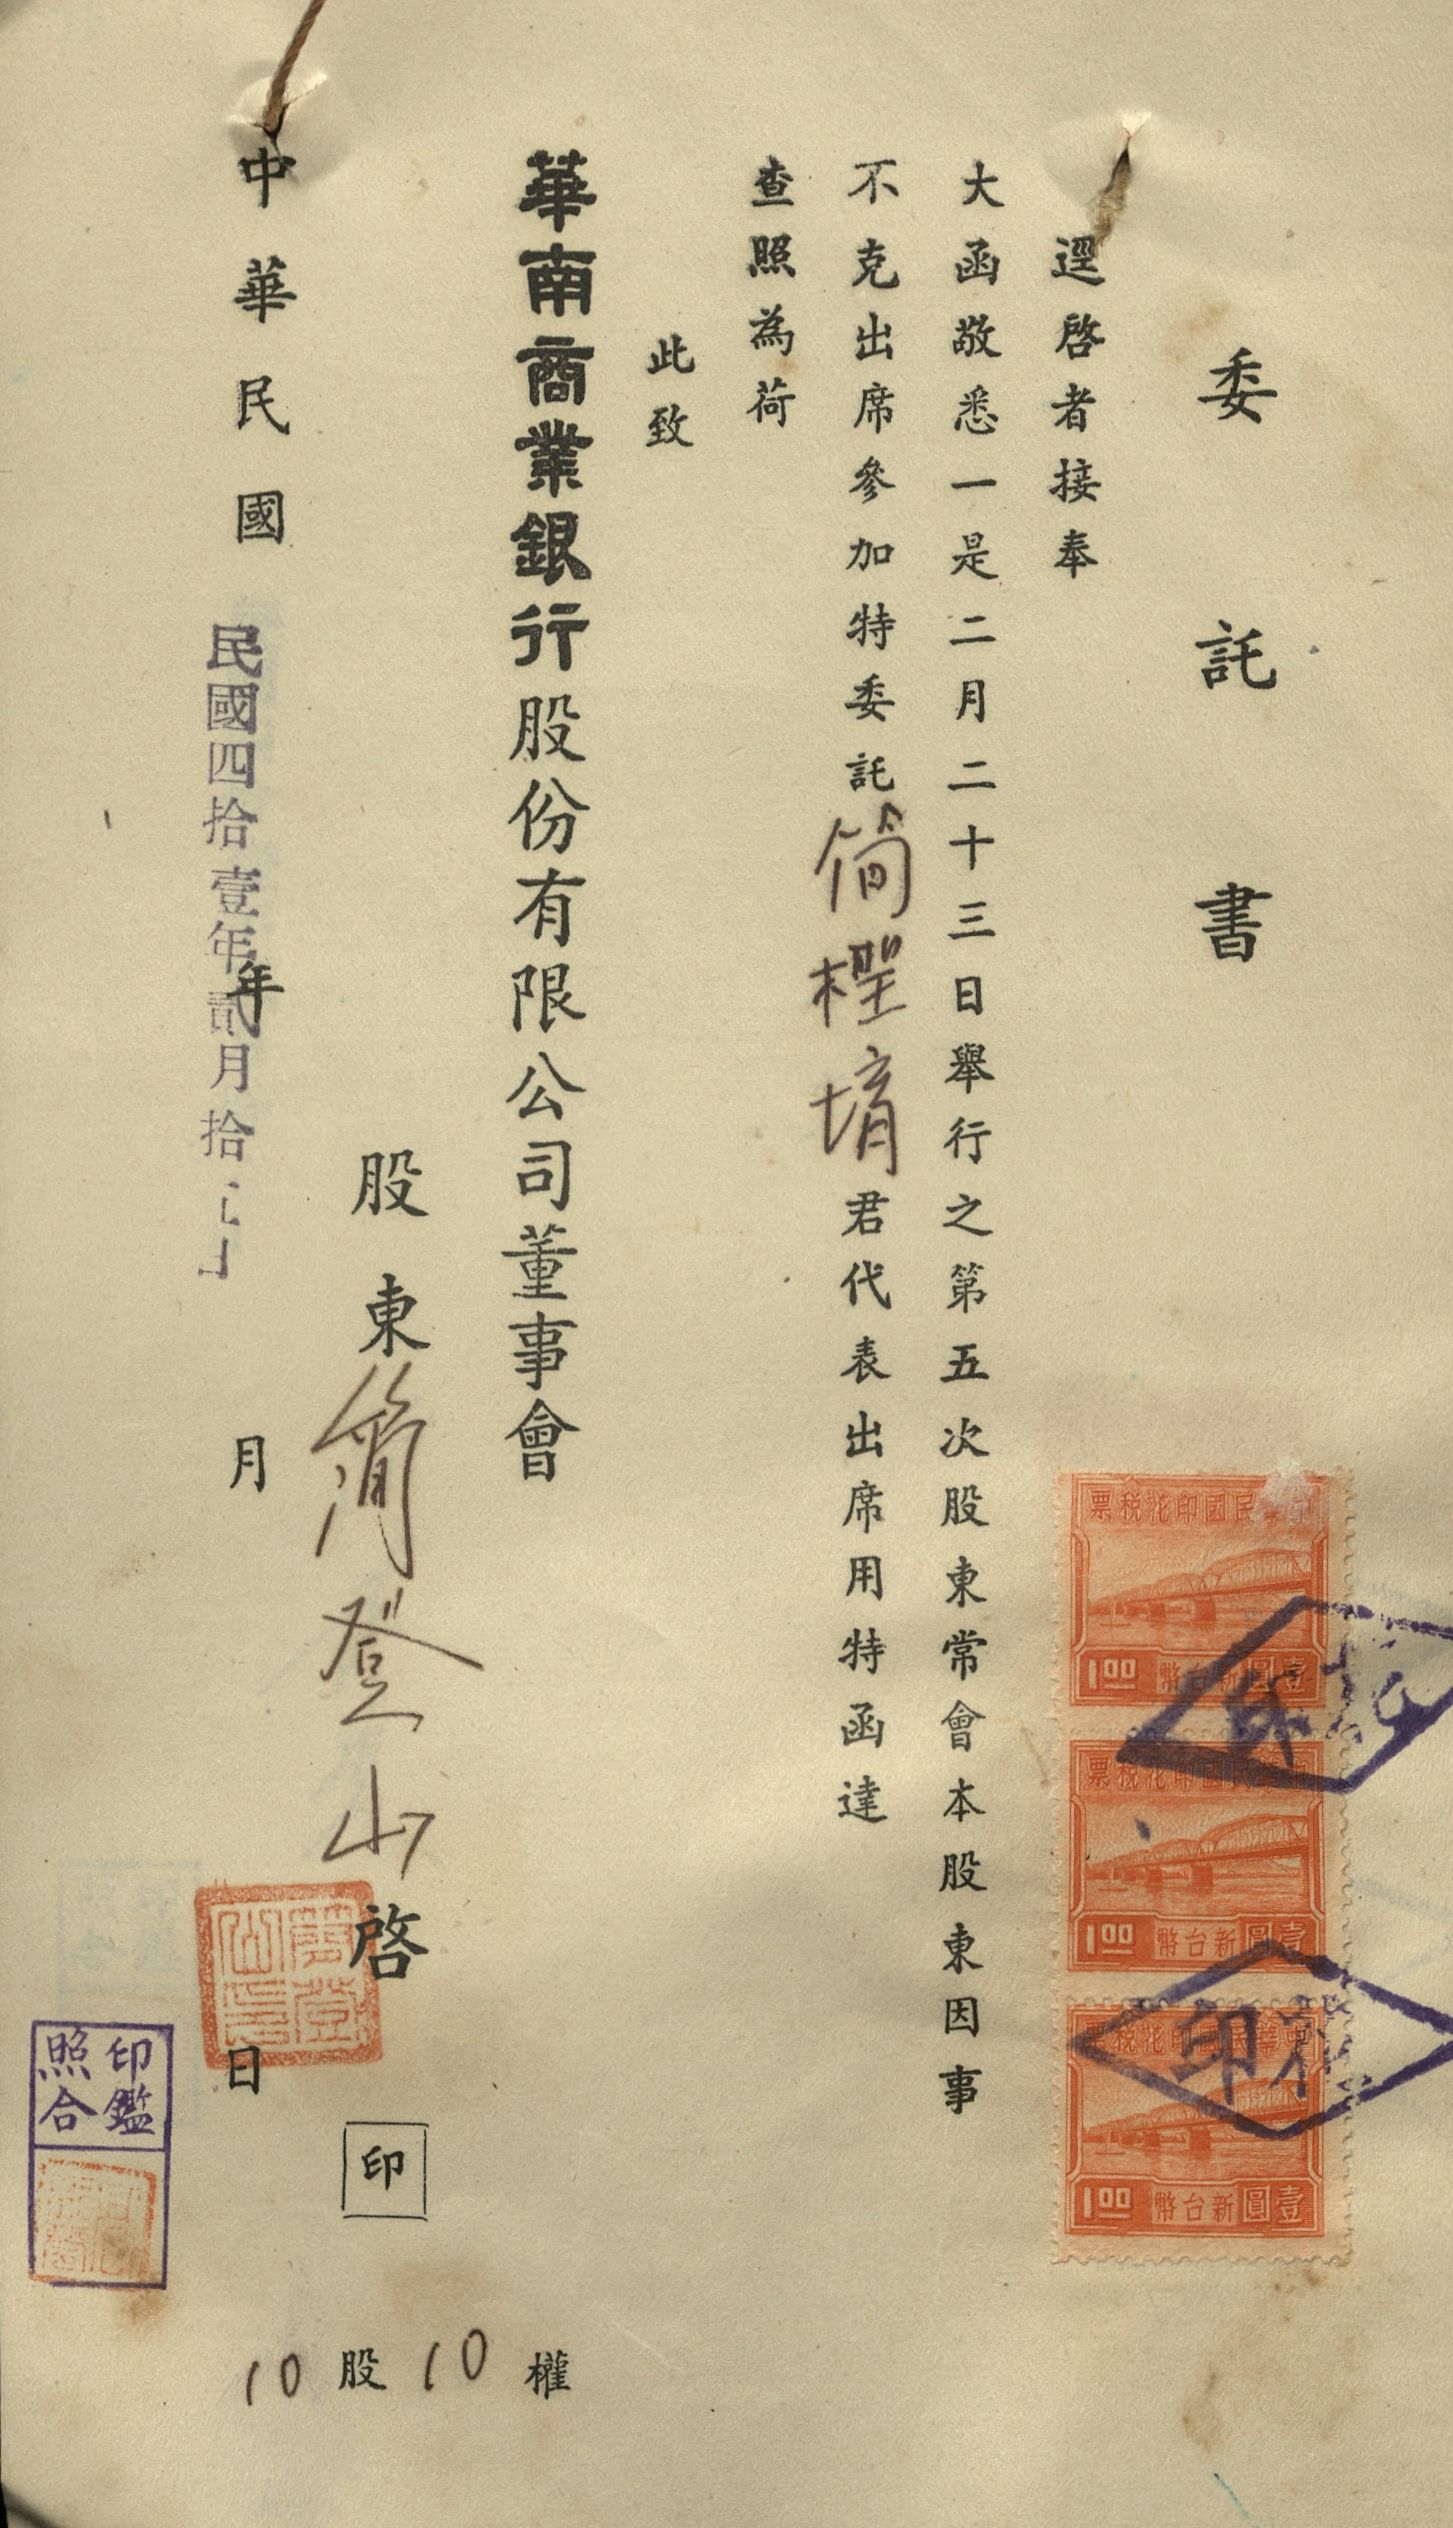 委託書
逕啓者接奉
大函敬悉一是二月二十三日舉行之第五次股東常會本股東因事
不克出席參加特委託簡樫堉君代表出席用特函達
查照為荷
此致
華南商業銀行股份有限公司董事會
股東簡登山啓 印
中華民國 年 月 日
民國四拾壹年貳月拾
10股10權
印鑑
照合
簡登山印
中華民國印花稅票
壹圓新台幣
1.00
中華民國印花稅票
壹圓新台幣
1.00
中華民國印花稅票
壹圓新台幣
1.00
印
印